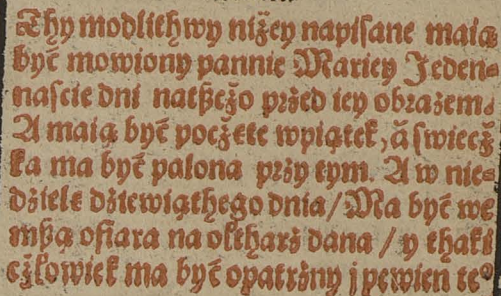 Thy modlithwy niżey napiſane maią
być mowiony pannie Mariey Jeden⸗
naſcie dni natßczo przed iey obrazem.
A maią być poczęte wpiątek, á ſwiecz
ka ma być palona przy tym. A w nie⸗
dzielę dziewiąthego dnia / Ma być we
mßą ofiara na oltharz dana / y thaki
człowiek ma być opatrzny j pewien te°